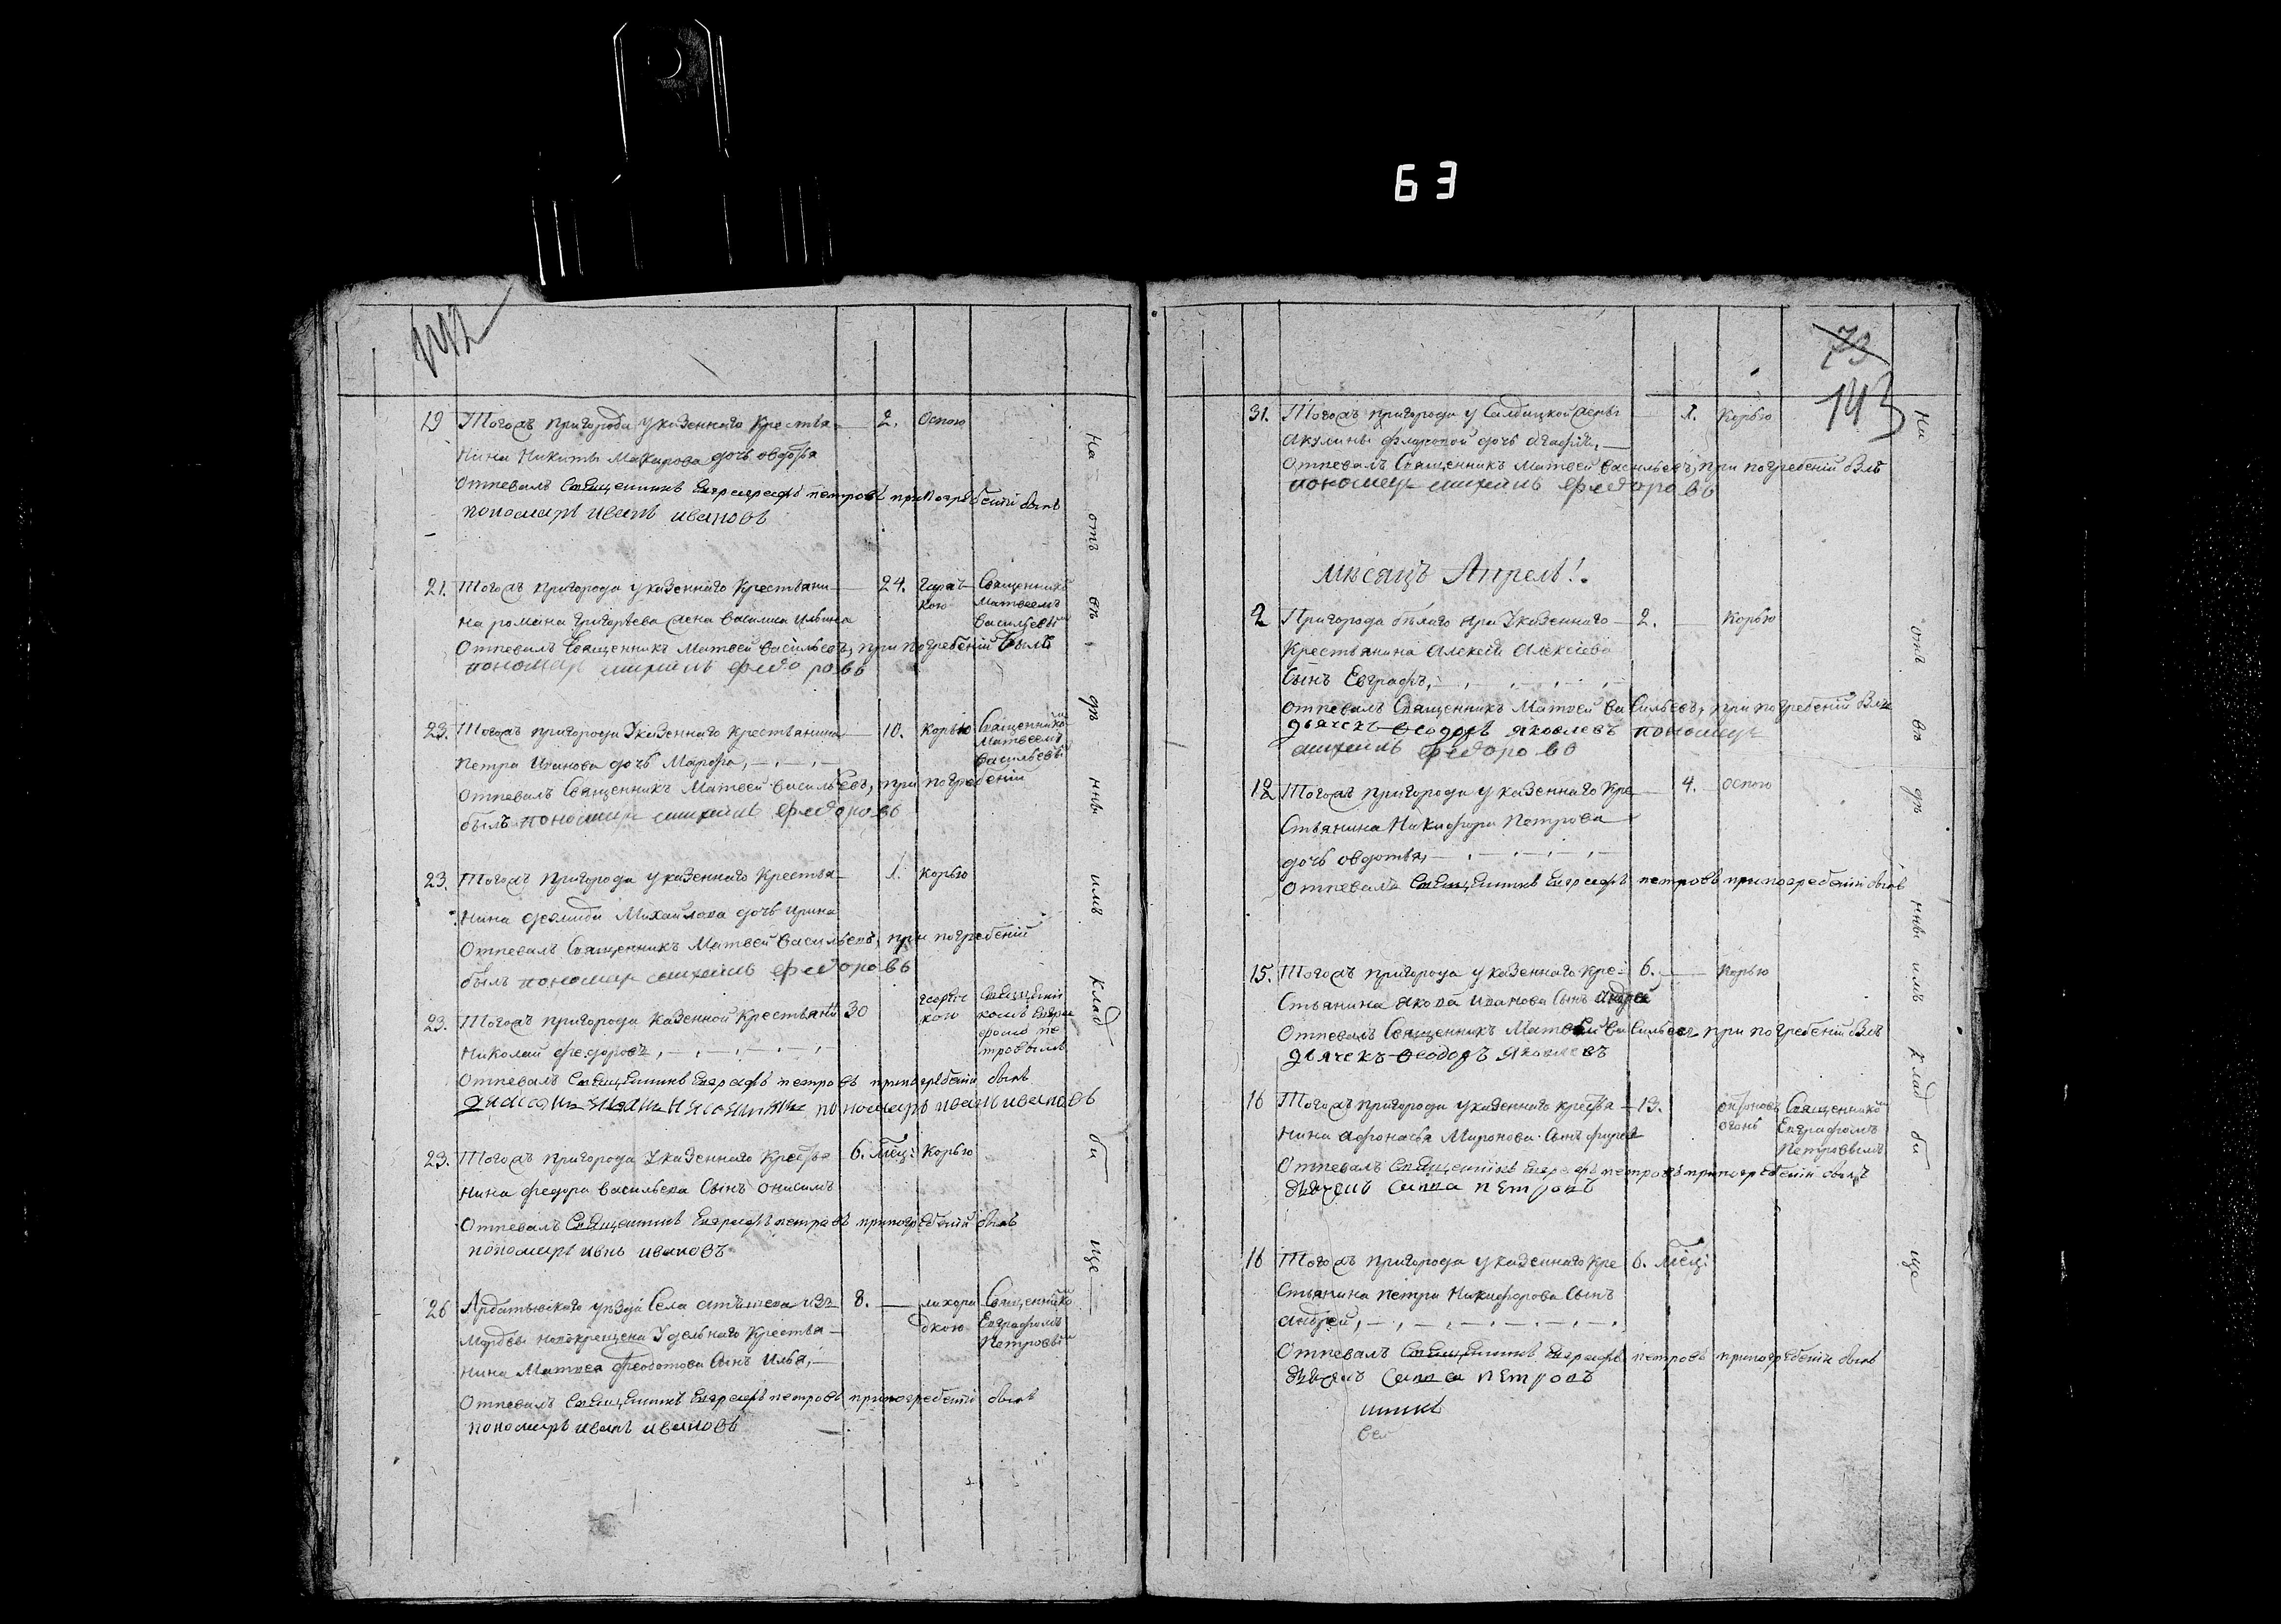 63
142
19 Тогожъ пригорода у казеннаго крестья- 2. Оспою
нина Никиты Макарова дочь овдотья
Отпевалъ Священникъ Евграфъ петровъ при погребении былъ
пономарь иванъ ивановъ
21. Тогожъ пригорода у казеннаго Крестьяни- 24. Священникомъ
на романа Григорьева жена василиса Ильина кою Матвеемъ
Васильевымъ
Отпевалъ Священникъ Матвей Васильевъ, при погребении былъ
пономарь михаилъ федоровъ
23. Тогожъ пригорода У казеннаго Крестьянина 10. Корью Священникомъ
Матвеемъ
Петра Иванова дочь Марфа, Васильевымъ
Отпевалъ Священникъ Матвей Васильевъ, при погребении
былъ пономарь михаилъ федоровъ
23. Тогожъ Пригорода у казеннаго Крестья- 1. Корью
нина Михайлова дочь Ирина
Отпевалъ Священникъ Матвей Васильевъ, при погребении
былъ пономарь михаилъ федоровъ
23. Тогожъ пригорода Казенной Крестьянинъ 30 кою Священникомъ Евграфомъ петровымъ
Николай федоровъ,
Отпевалъ Священникъ Евграфъ петровъ при погребении былъ
пономарь иванъ ивановъ
23. Тогожъ пригорода У казеннаго Крестья 6. мец: Корью
нина федора васильева Сынъ Онисимъ
Отпевалъ Священникъ Евграфъ петровъ при погребении былъ
пономарь иванъ ивановъ
26 Ардатовскаго уезда Села изъ 8. лихора Священникомъ
Мордвы новокрещена Удельнаго Крестья- дкою Евграфомъ
Петровымъ
нина Матвея Феодотова Сынъ Илья,
Отпевалъ Священникъ Евграфъ петровъ при погребении былъ
пономарь иванъ ивановъ
На отъ въ дѣ ннѣ имъ клад би ще
73
143
31. Тогожъ пригорода у Салдацкой жены 1. Корью
Акулины дочь Агафия,
Отпевалъ Священникъ Матвей Васильевъ, при погребении былъ
пономарь михаилъ федоровъ
Мѣсяцъ Апрель!
2 Пригорода белаго яра У казеннаго 2. Корью
Крестьянина Алексея Алексеева
Сынъ Евграфъ,
Отпевалъ Священникъ Матвей Васильевъ, при погребении былъ
дьячекъ Феодоръ Яковлевъ пономарь
михаилъ федоровъ
12 Тогожъ пригорода у казеннаго Кре 4. оспою
стьянина Никифора Петрова
дочь овдотья,
Отпевалъ Священникъ Евграфъ петровъ при погребении былъ
15. Тогожъ пригорода у казеннаго Кре- 6. Корью
стьянина Якова Иванова Сынъ Андрей
Отпевалъ Священникъ Матвей Васильевъ при погребении былъ
дьячекъ Феодоръ Яковлевъ
16 Тогожъ пригорода у казеннаго крестья 13. антоновъ Священникомъ
огонь Евграфомъ
нина Афонасья Миронова Сынъ Петровымъ
Отпевалъ Священникъ Евграфъ петровъ при погребении былъ
дьячекъ Савва петровъ
16 Тогожъ пригорода у казеннаго Кре 6. мец:
стьянина петра Никифорова Сынъ
андрей,
Отпевалъ Священникъ Евграфъ петровъ при погребении былъ
дьячекъ Савва петровъ
никъ
На отъ въ дѣ ннѣ имъ клад би ще